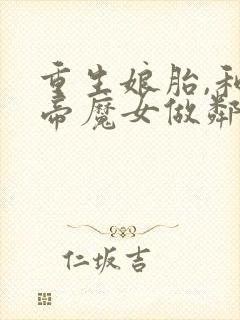 重生娘胎,和
帝魔女做鄰
仁坂吉